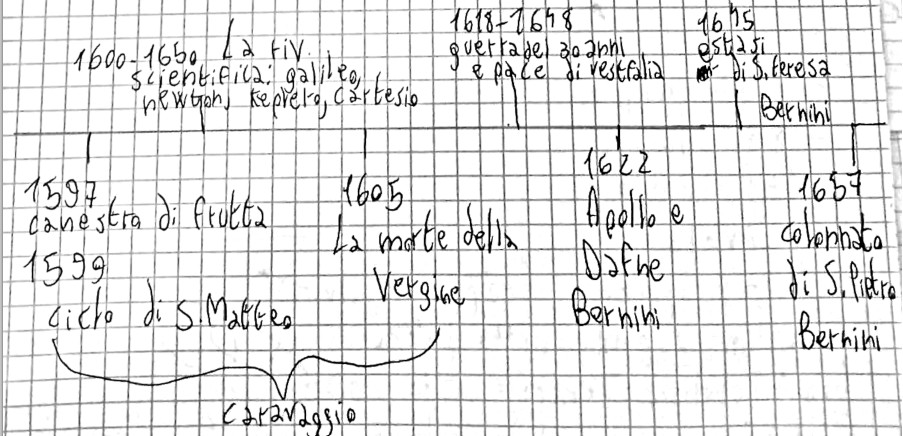 1600-1650 La riv.
scientifica: galileo,
newton, keplero, cartesio
1618-1648
guerra dei 30 anni
e pace di vestfalia
1645
estasi
di S. teresa
Bernini
1597
canestra di frutta
1599
ciclo di S. Matteo
1605
La morte della
Vergine
caravaggio
1622
Apollo e
Dafne
Bernini
1657
colonnato
di S. Pietro
Bernini